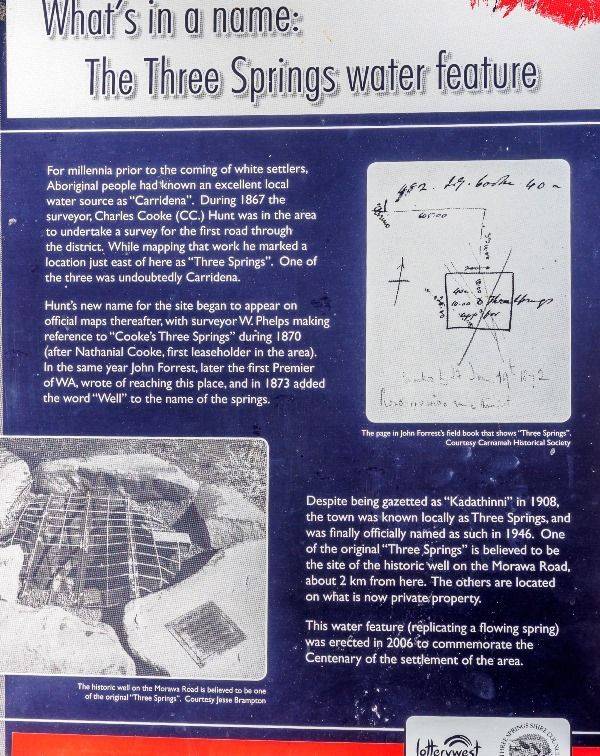 What's in a name:
The Three Springs water feature
For millennia prior to the coming of white settlers,
Aboriginal people had known an excellent local
water source as "Carridena". During 1867 the
surveyor, Charles Cooke (CC.) Hunt was in the area
to undertake a survey for the first road through
the district. While mapping that work he marked a
location just east of here as "Three Springs". One of
the three was undoubtedly Carridena.
Hunt's new name for the site began to appear on
official maps thereafter, with surveyor W. Phelps making
reference to "Cooke's Three Springs" during 1870
(after Nathanial Cooke, first leaseholder in the area).
In the same year John Forrest, later the first Premier
of WA, wrote of reaching this place, and in 1873 added
the word "Well" to the name of the springs.
40
Three Springs
The page in John Forrest's field book that shows "Three Springs".
Courtesy Carnamah Historical Society
Despite being gazetted as "Kadathinni" in 1908,
the town was known locally as Three Springs, and
was finally officially named as such in 1946. One
of the original "Three Springs" is believed to be
the site of the historic well on the Morawa Road,
about 2 km from here. The others are located
on what is now private property.
This water feature (replicating a flowing spring)
was erected in 2006 to commemorate the
Centenary of the settlement of the area.
The historic well on the Morawa Road is believed to be one
of the original "Three Springs". Courtesy Jesse Brampton
lotterywest
THREE SPRINGS SHIRE COUNCIL